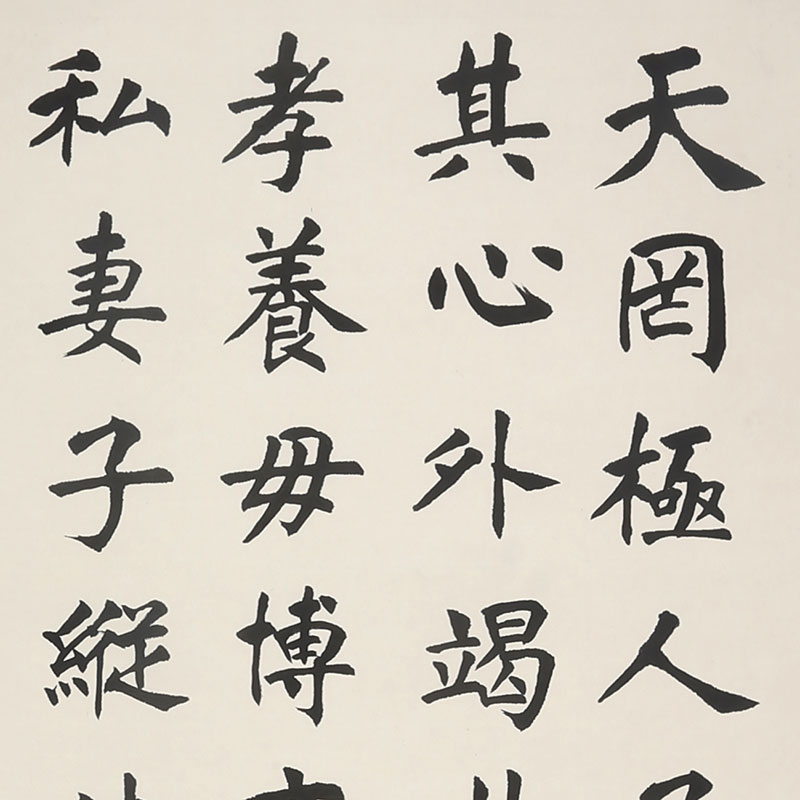 天罔極人
其心外竭
孝養毋博
私妻子縱